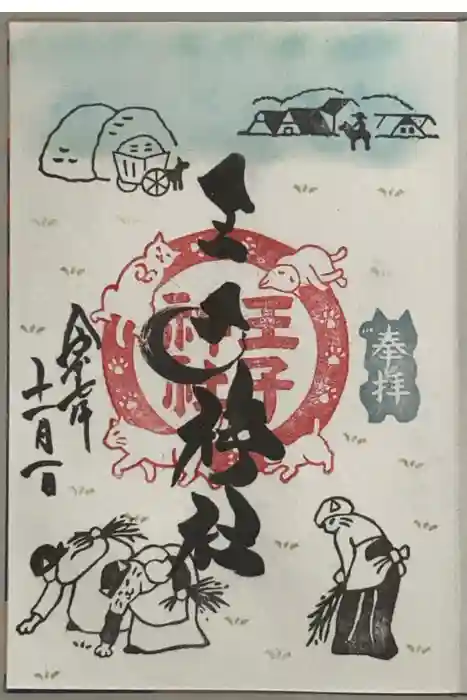 奉拝
王子神社
王子神社
令和六年
十一月一日